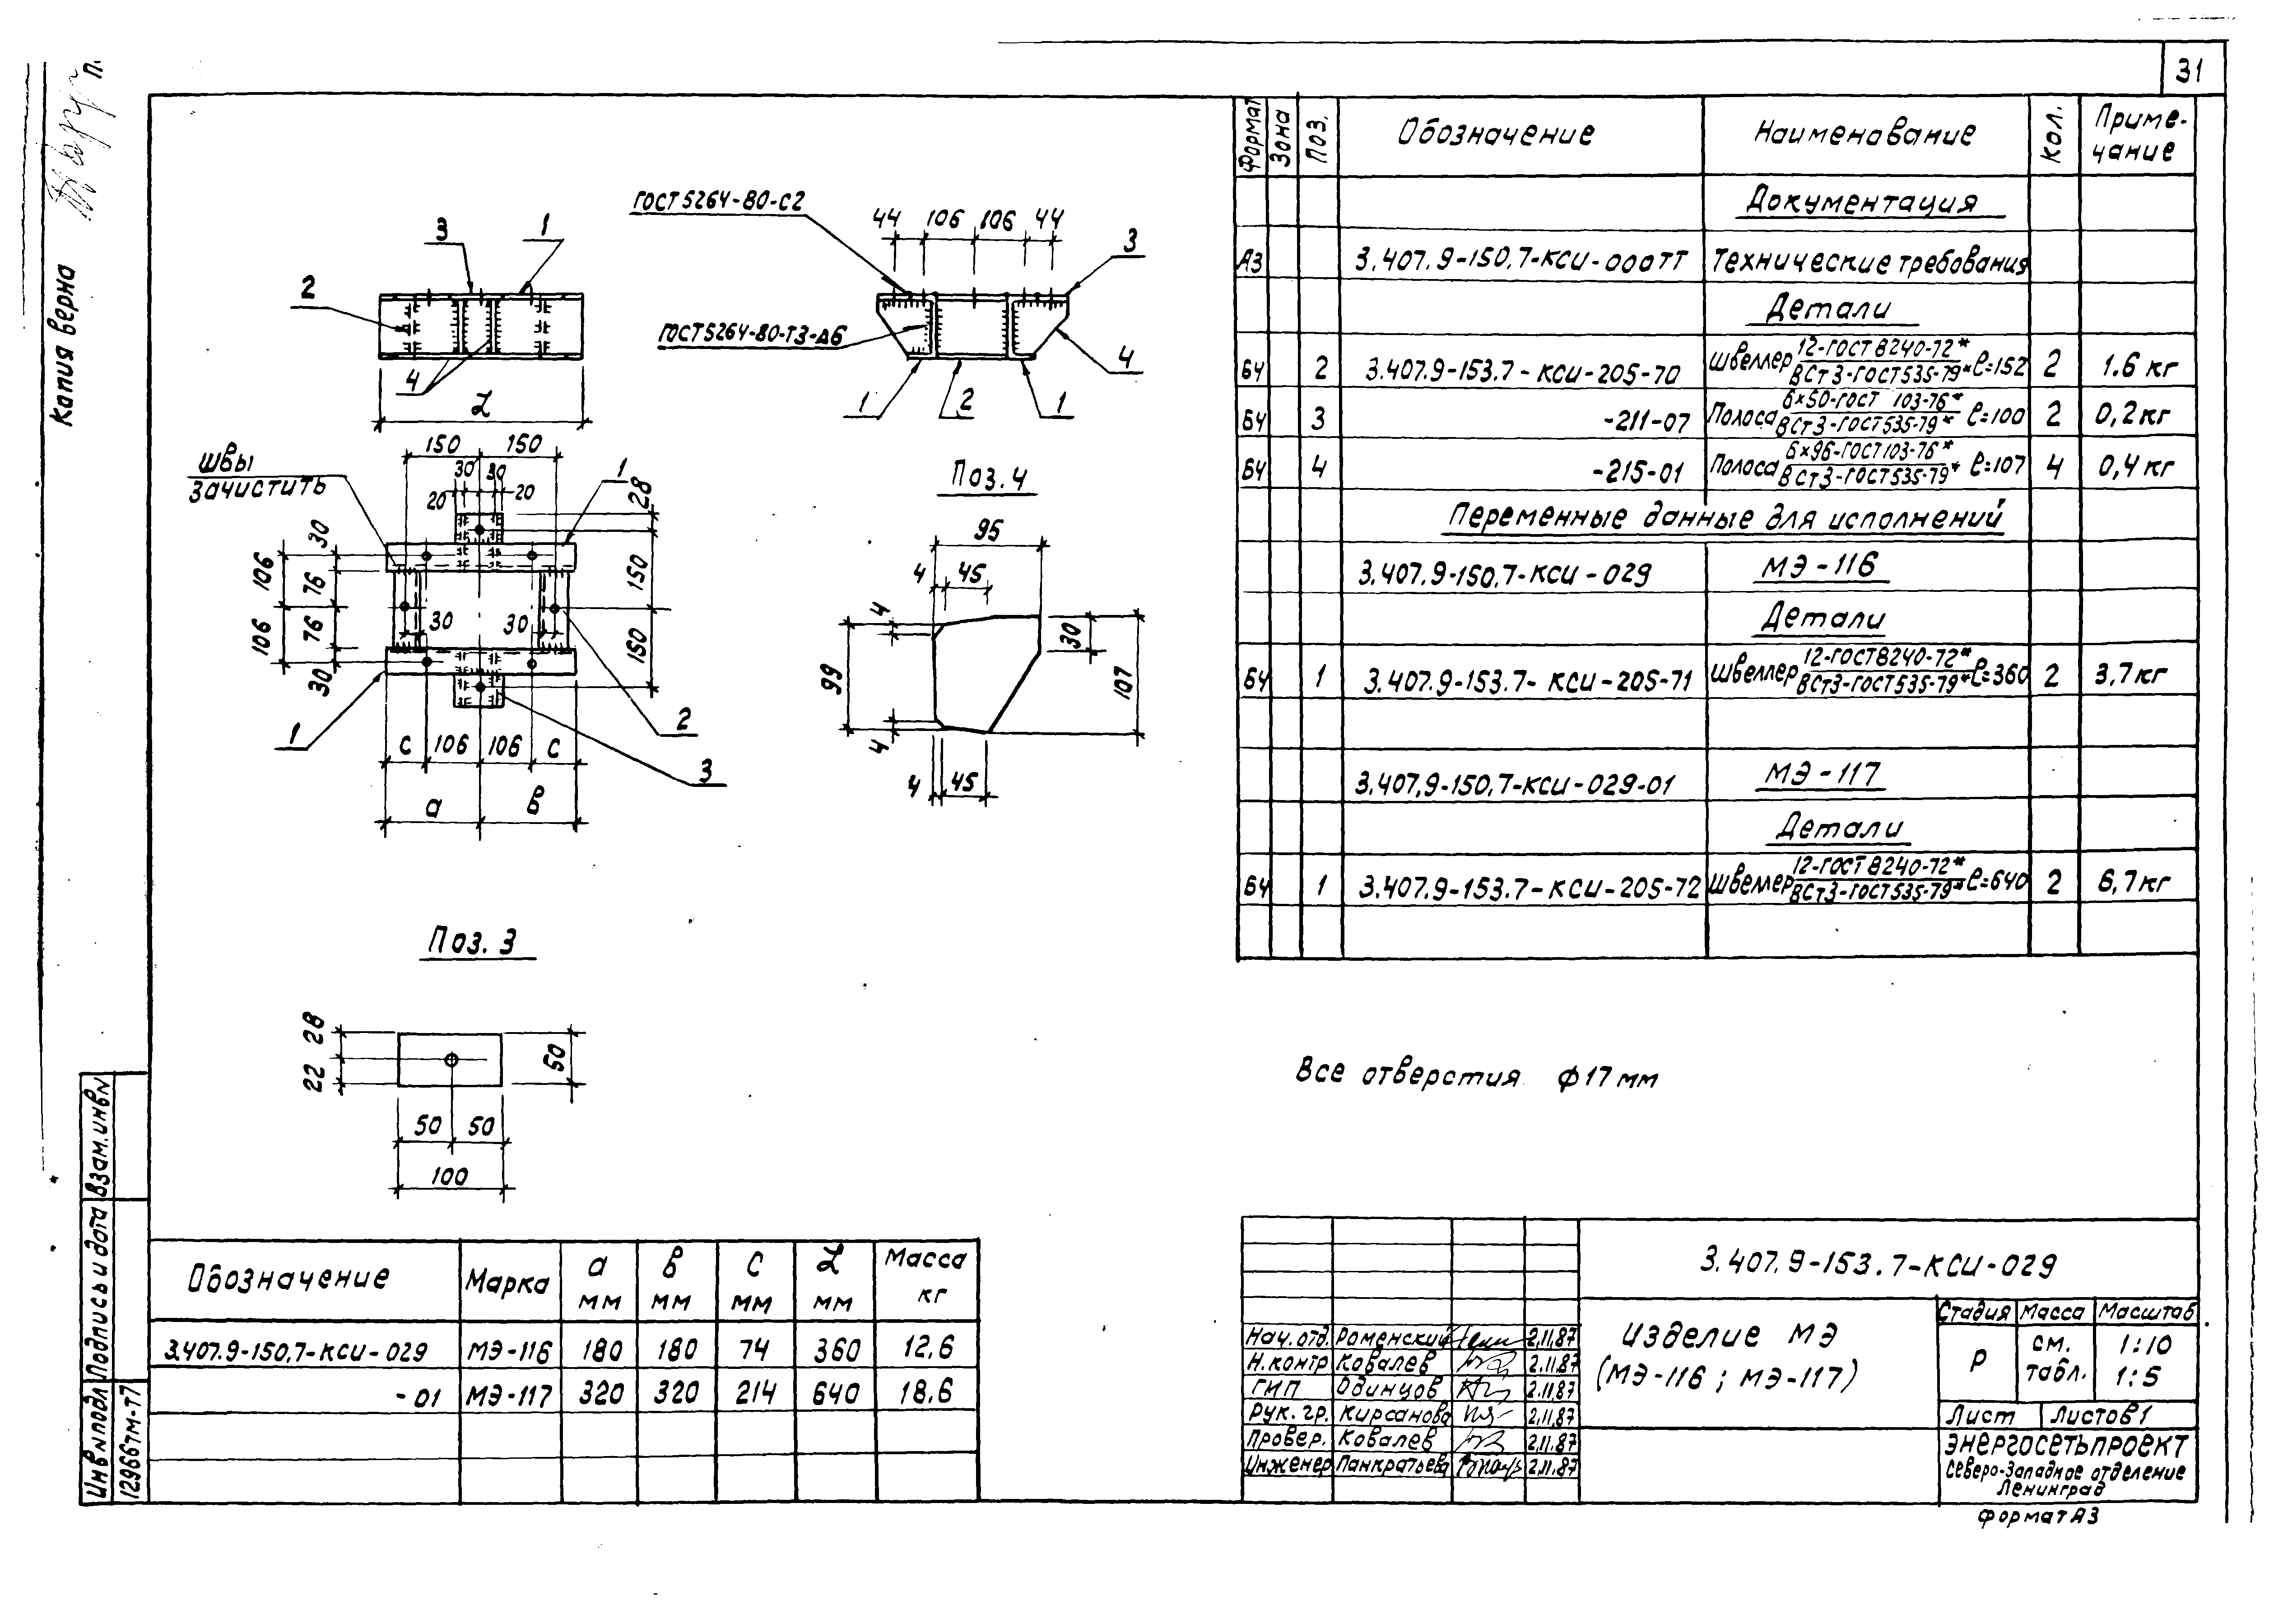 31
Капия верна
Формат
Зона
Поз.
Обозначение
Наименование
Кол.
Приме-
чание
Документация
А3 3.407.9-150.7-КСИ-000ТТ Технические требования
Детали
БЧ 2 3.407.9-153.7-КСИ-205-70 Швеллер 12-ГОСТ 8240-72* / ВСт3-ГОСТ535-79* ℓ=152 2 1.6 кг
БЧ 3 -211-07 Полоса 6×50-ГОСТ 103-76* / ВСт3-ГОСТ535-79* ℓ=100 2 0,2кг
БЧ 4 -215-01 Полоса 6×96-ГОСТ103-76* / ВСт3-ГОСТ535-79* ℓ=107 4 0,4кг
Переменные данные для исполнений
3.407.9-150.7-КСИ-029 МЭ-116
Детали
БЧ 1 3.407.9-153.7-КСИ-205-71 Швеллер 12-ГОСТ8240-72* / ВСт3-ГОСТ535-79* ℓ=360 2 3,7кг
3.407.9-150.7-КСИ-029-01 МЭ-117
Детали
БЧ 1 3.407.9-153.7-КСИ-205-72 Швеллер 12-ГОСТ8240-72* / ВСт3-ГОСТ535-79* ℓ=640 2 6,7кг
3 1
2
4
L
ГОСТ5264-80-С2
44 106 106 44
3
ГОСТ5264-80-Т3-Δ6
4
1 2 1
швы
зачистить
150 150
30 30
20 20
28
1
30
106 76
150
30 30
106 76
150
30
1
2
3
с 106 106 с
а в
Поз.4
95
4 45
4
99
30
107
4
4 45
Поз. 3
28
22
50
50 50
100
Все отверстия ф17мм
Обозначение Марка а мм в мм с мм L мм Масса кг
3.407.9-150.7-КСИ-029 МЭ-116 180 180 74 360 12,6
-01 МЭ-117 320 320 214 640 18,6
3.407.9-153.7-КСИ-029
Изделие МЭ
(МЭ-116; МЭ-117)
Стадия Масса Масштаб
Р см. табл. 1:10 1:5
Лист Листов1
Энергосетьпроект
Северо-Западное отделение
Ленинград
Нач.отд. Роменский 2.11.87
Н.контр Ковалев 2.11.87
ГИП Одинцов 2.11.87
Рук.гр. Кирсанова 2.11.87
Провер. Ковалев 2.11.87
Инженер Панкратьева 2.11.87
формат А3
Взам.инвN
Подпись и дата
Инв.Nподл
12966тм-т7